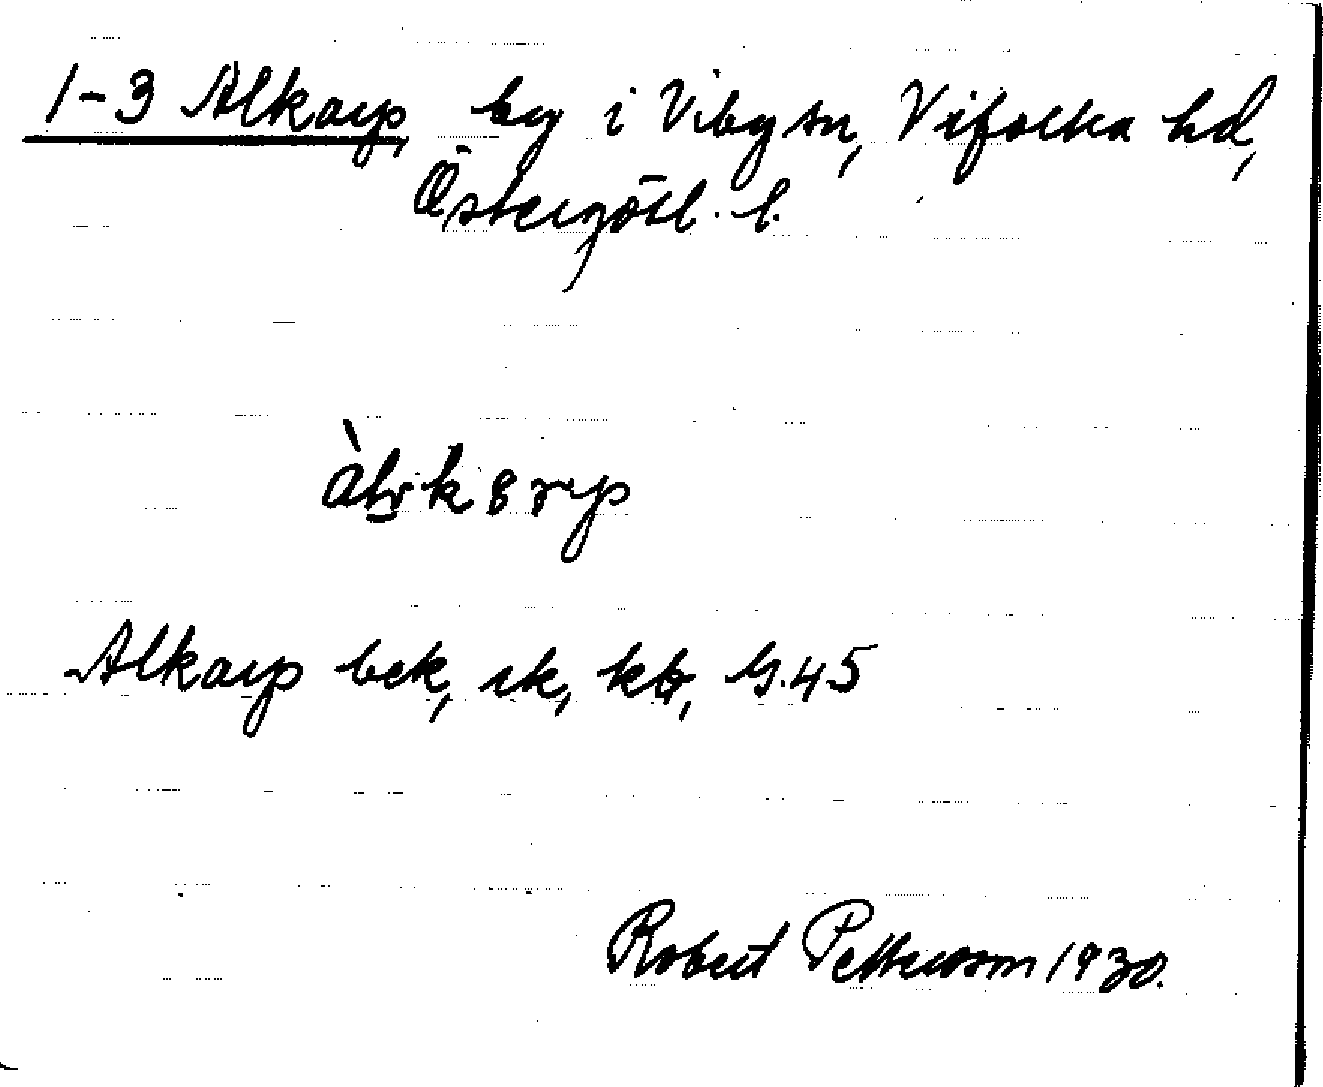 1-3 Alkarp, by i Viby sn, Vifolka hd,
Östergötl. l.
Alkarp bek, rk, kb, G.45
Robert Pettersson 1930.